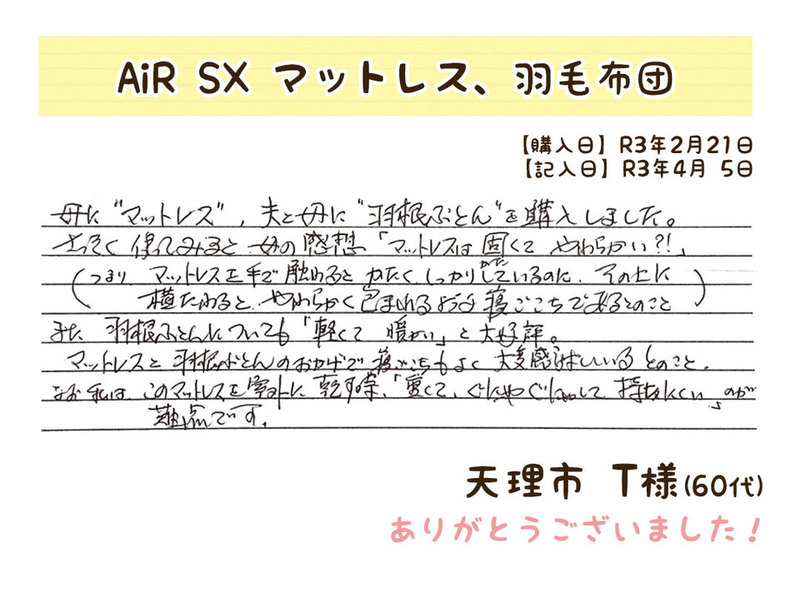 AiR SX マットレス、羽毛布団
【購入日】R3年2月21日
【記入日】R3年4月 5日
母に"マットレス"，夫と母に"羽根ぶとん"を購入しました。
さっそく使ってみると 母の感想「マットレスは固くて やわらかい?!」
かた
(つまり マットレスを手で触れるとかたく しっかりしているのに、その上に
横たわると、やわらかく包まれるような寝ごこちであるとのこと)
また 羽根ぶとんについても「軽くて 暖かい」と大好評。
マットレスと羽根ぶとんのおかげで寝ごこちもよく 大変 とのこと．
なお 私は、このマットレスを室外に乾す際、「重くて、ぐにゃぐにゃして 持ちにくい」のが
難点です．
天理市 T様(60代)
ありがとうございました！